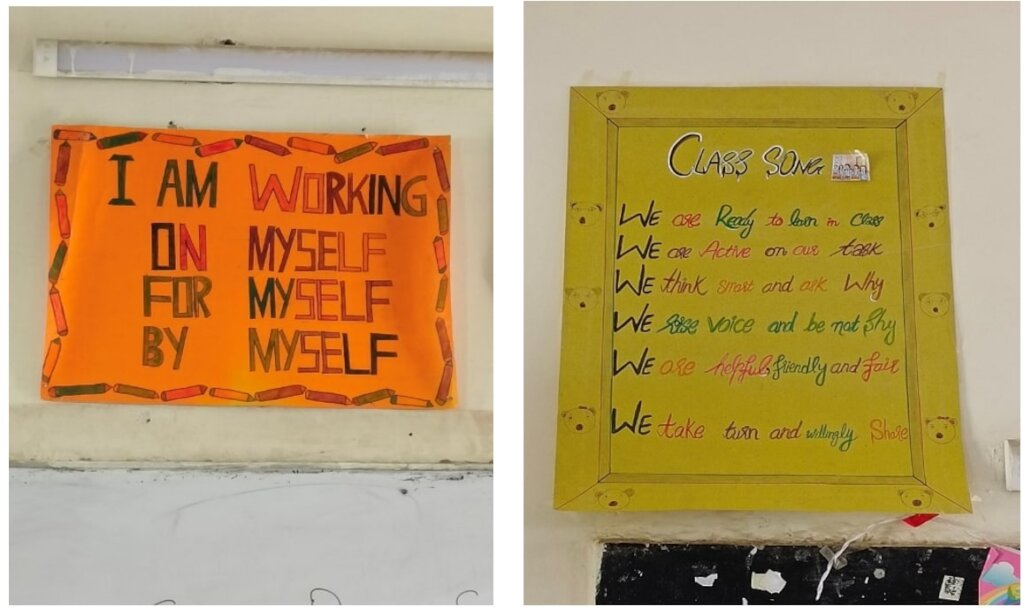 I AM WORKING
ON MYSELF
FOR MYSELF
BY MYSELF
CLASS SONG
WE are Ready to learn in Class
WE are Active on our task
WE think smart and ask Why
WE rise voice and be not Shy
WE are helpful, friendly and fair
WE take turn and willingly Share